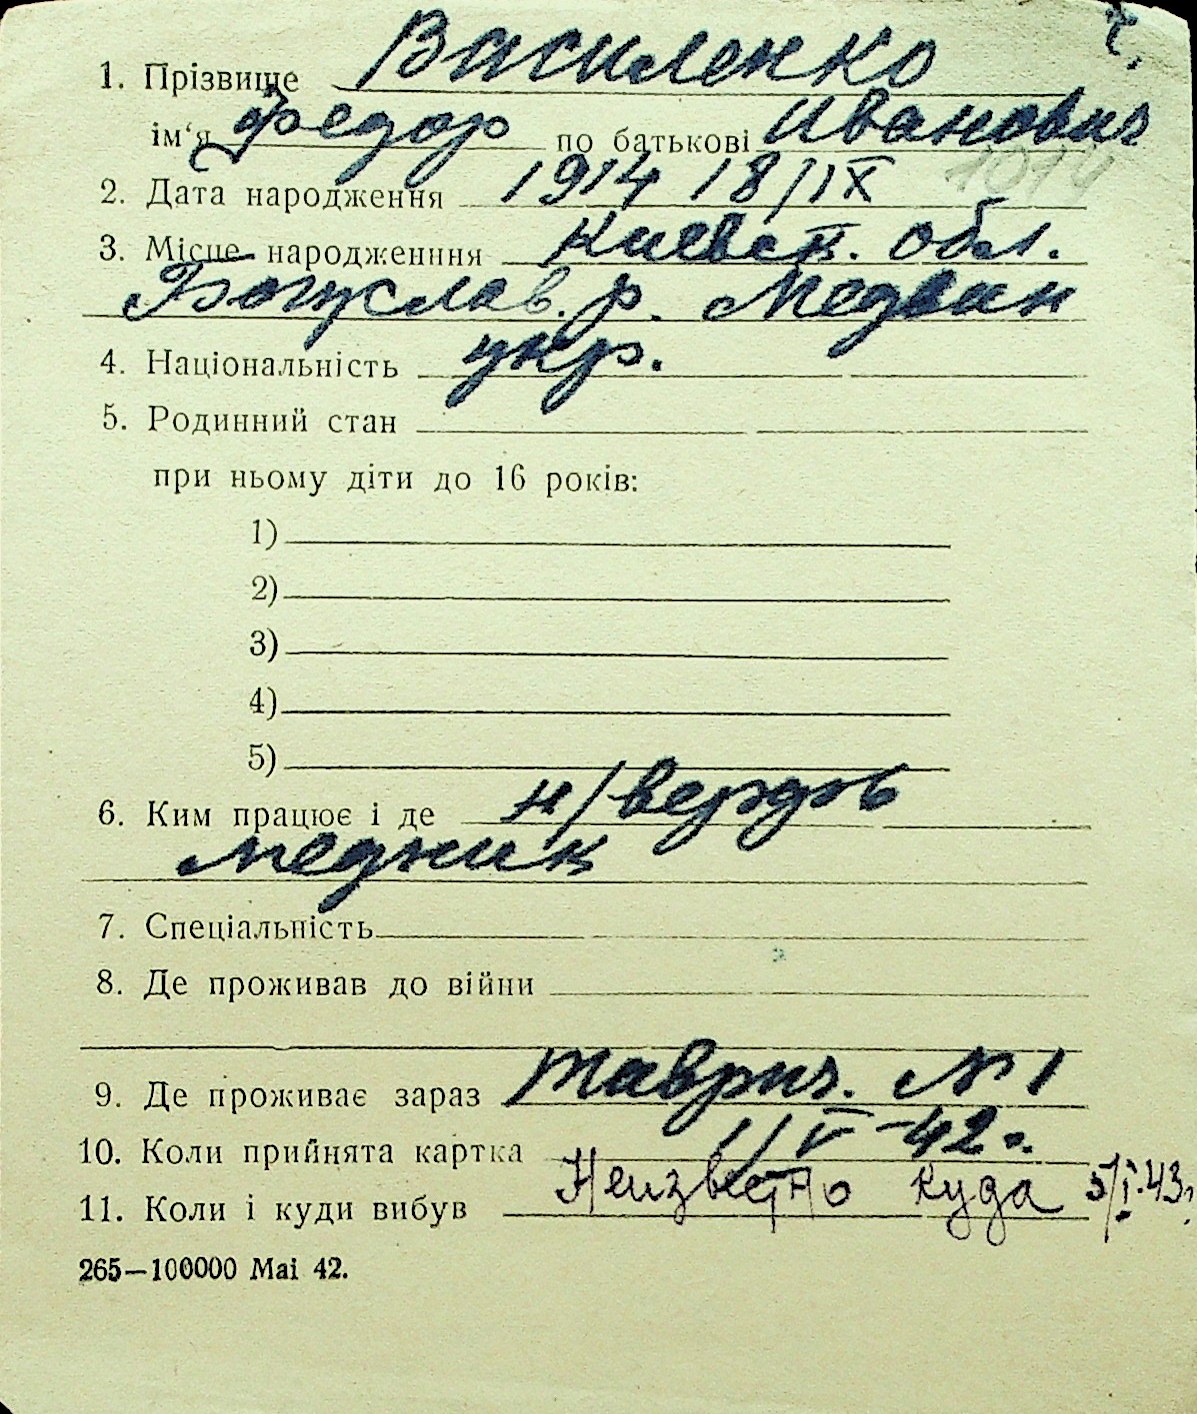 ч.
1. Прізвище Василенко
ім'я Федор по батькові Иванович
1914
2. Дата народження 1914 18/IX
3. Місце народженння Киевск. обл.
Богуслав. р. Медвин
4. Національність укр.
5. Родинний стан
при ньому діти до 16 років:
1)
2)
3)
4)
5)
6. Ким працює і де н/верфь
медник
7. Спеціальність
8. Де проживав до війни
9. Де проживає зараз Таврич. № 1
10. Коли прийнята картка 1/V-42г.
11. Коли і куди вибув Неизвестно куда 5/I.43г.
265—100000 Mai 42.